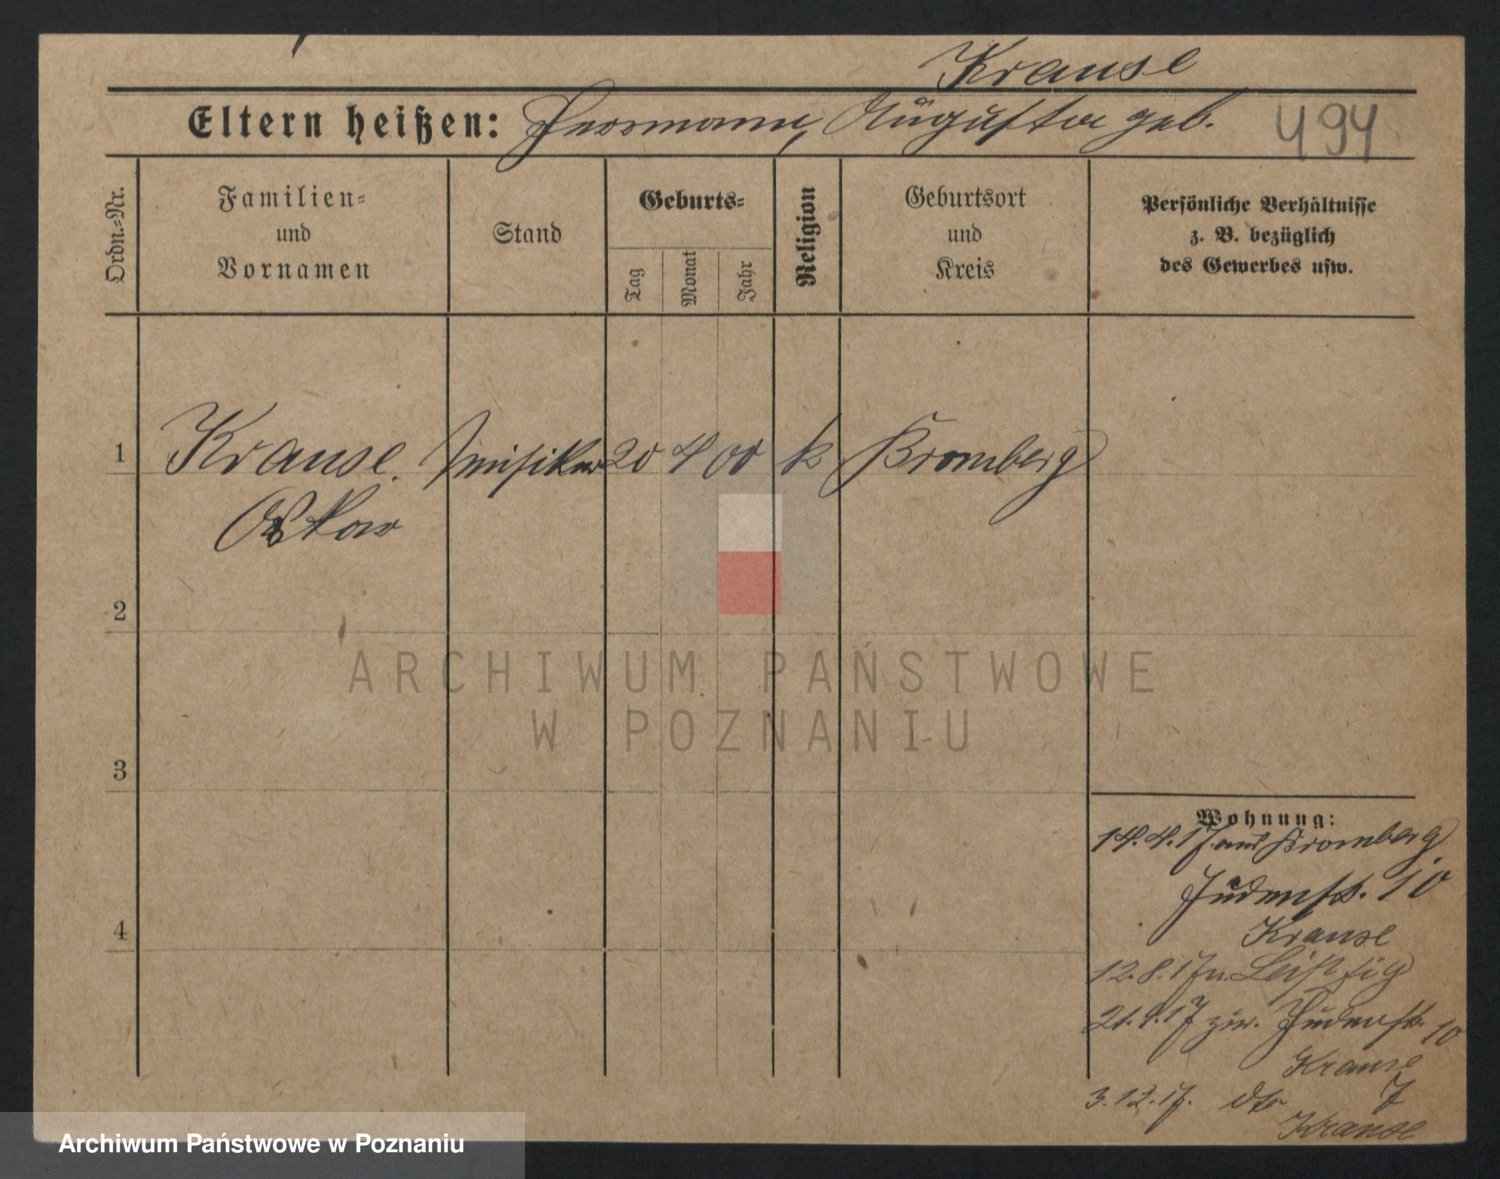 Krause
Eltern heißen: Hermann, Auguste geb.
494
Ordn.=Nr.
Familien=
und
Vornamen
Stand
Geburts=
Tag
Monat
Jahr
Religion
Geburtsort
und
Kreis
Persönliche Verhältnisse
z. B. bezüglich
des Gewerbes usw.
1 Krause Musiker 20 4 00 k Bromberg
Oskar
2
3
4
Wohnung:
14.4.17 aus Bromberg
Judenstr. 10
Krause
12.8.17 n. Leipzig
21.9.17 zur. Judenstr. 10
Krause
3.12.17. dto 7
Krause
ARCHIWUM PAŃSTWOWE
W POZNANIU
Archiwum Państwowe w Poznaniu